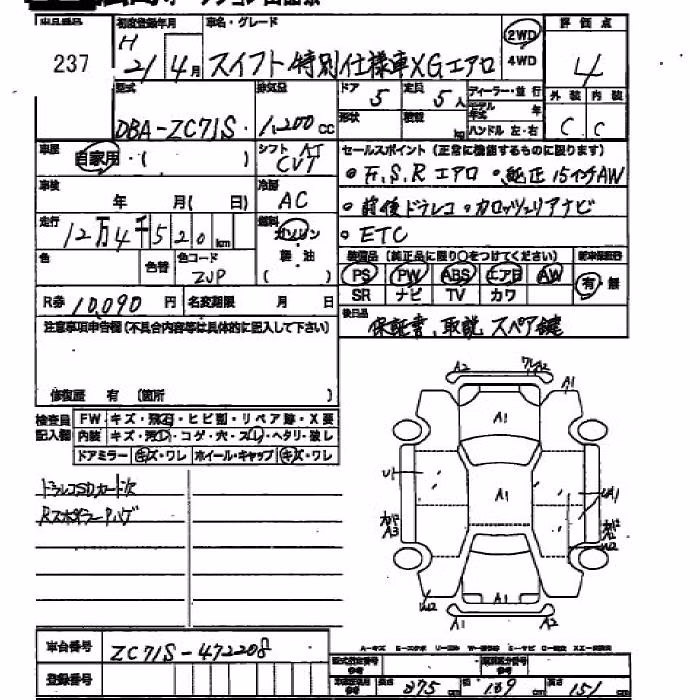 237
初度登録年月
車名・グレード
評価点
H 21 4月 スイフト特別仕様車XGエアロ
2WD
4WD
4
型式
排気量
ドア 5
定員 5人
ディーラー・並行
外装 内装
DBA-ZC71S
1,200cc
形状
積載 kg
モデル年式 年
ハンドル 左・右
C C
車歴
自家用・( )
シフト AT
CVT
セールスポイント(正常に機能するものに限ります)
F.S.Rエアロ
純正15インチAW
車検
年 月( 日)
冷房
AC
前後ドラレコ
カロッツェリアナビ
走行
12万4千520km
燃料
ガソリン
軽油
( )
ETC
色
色替
色コード
ZJP
装備品(純正品に限り○をつけてください)
PS PW ABS エアB AW
SR ナビ TV カワ
有・無
R券 10,090円
名変期限 月 日
後日品
保証書、取説、スペア鍵
注意事項申告欄(不具合内容等は具体的に記入して下さい)
修復歴 有 (箇所 )
検査員
記入欄
FW キズ・飛石・ヒビ割・リペア跡・X要
内装 キズ・汚れ・コゲ・穴・スレ・ヘタリ・破レ
ドアミラー キズ・ワレ
ホイール・キャップ キズ・ワレ
ドラレコSDカード欠
RスポイラーPハゲ
A2
A2
A1
A1
U1
A1
A3
W2
W2
A1
A1
A2
車台番号
ZC71S-472208
登録番号
長さ 375cm
幅 169cm
高さ 151cm